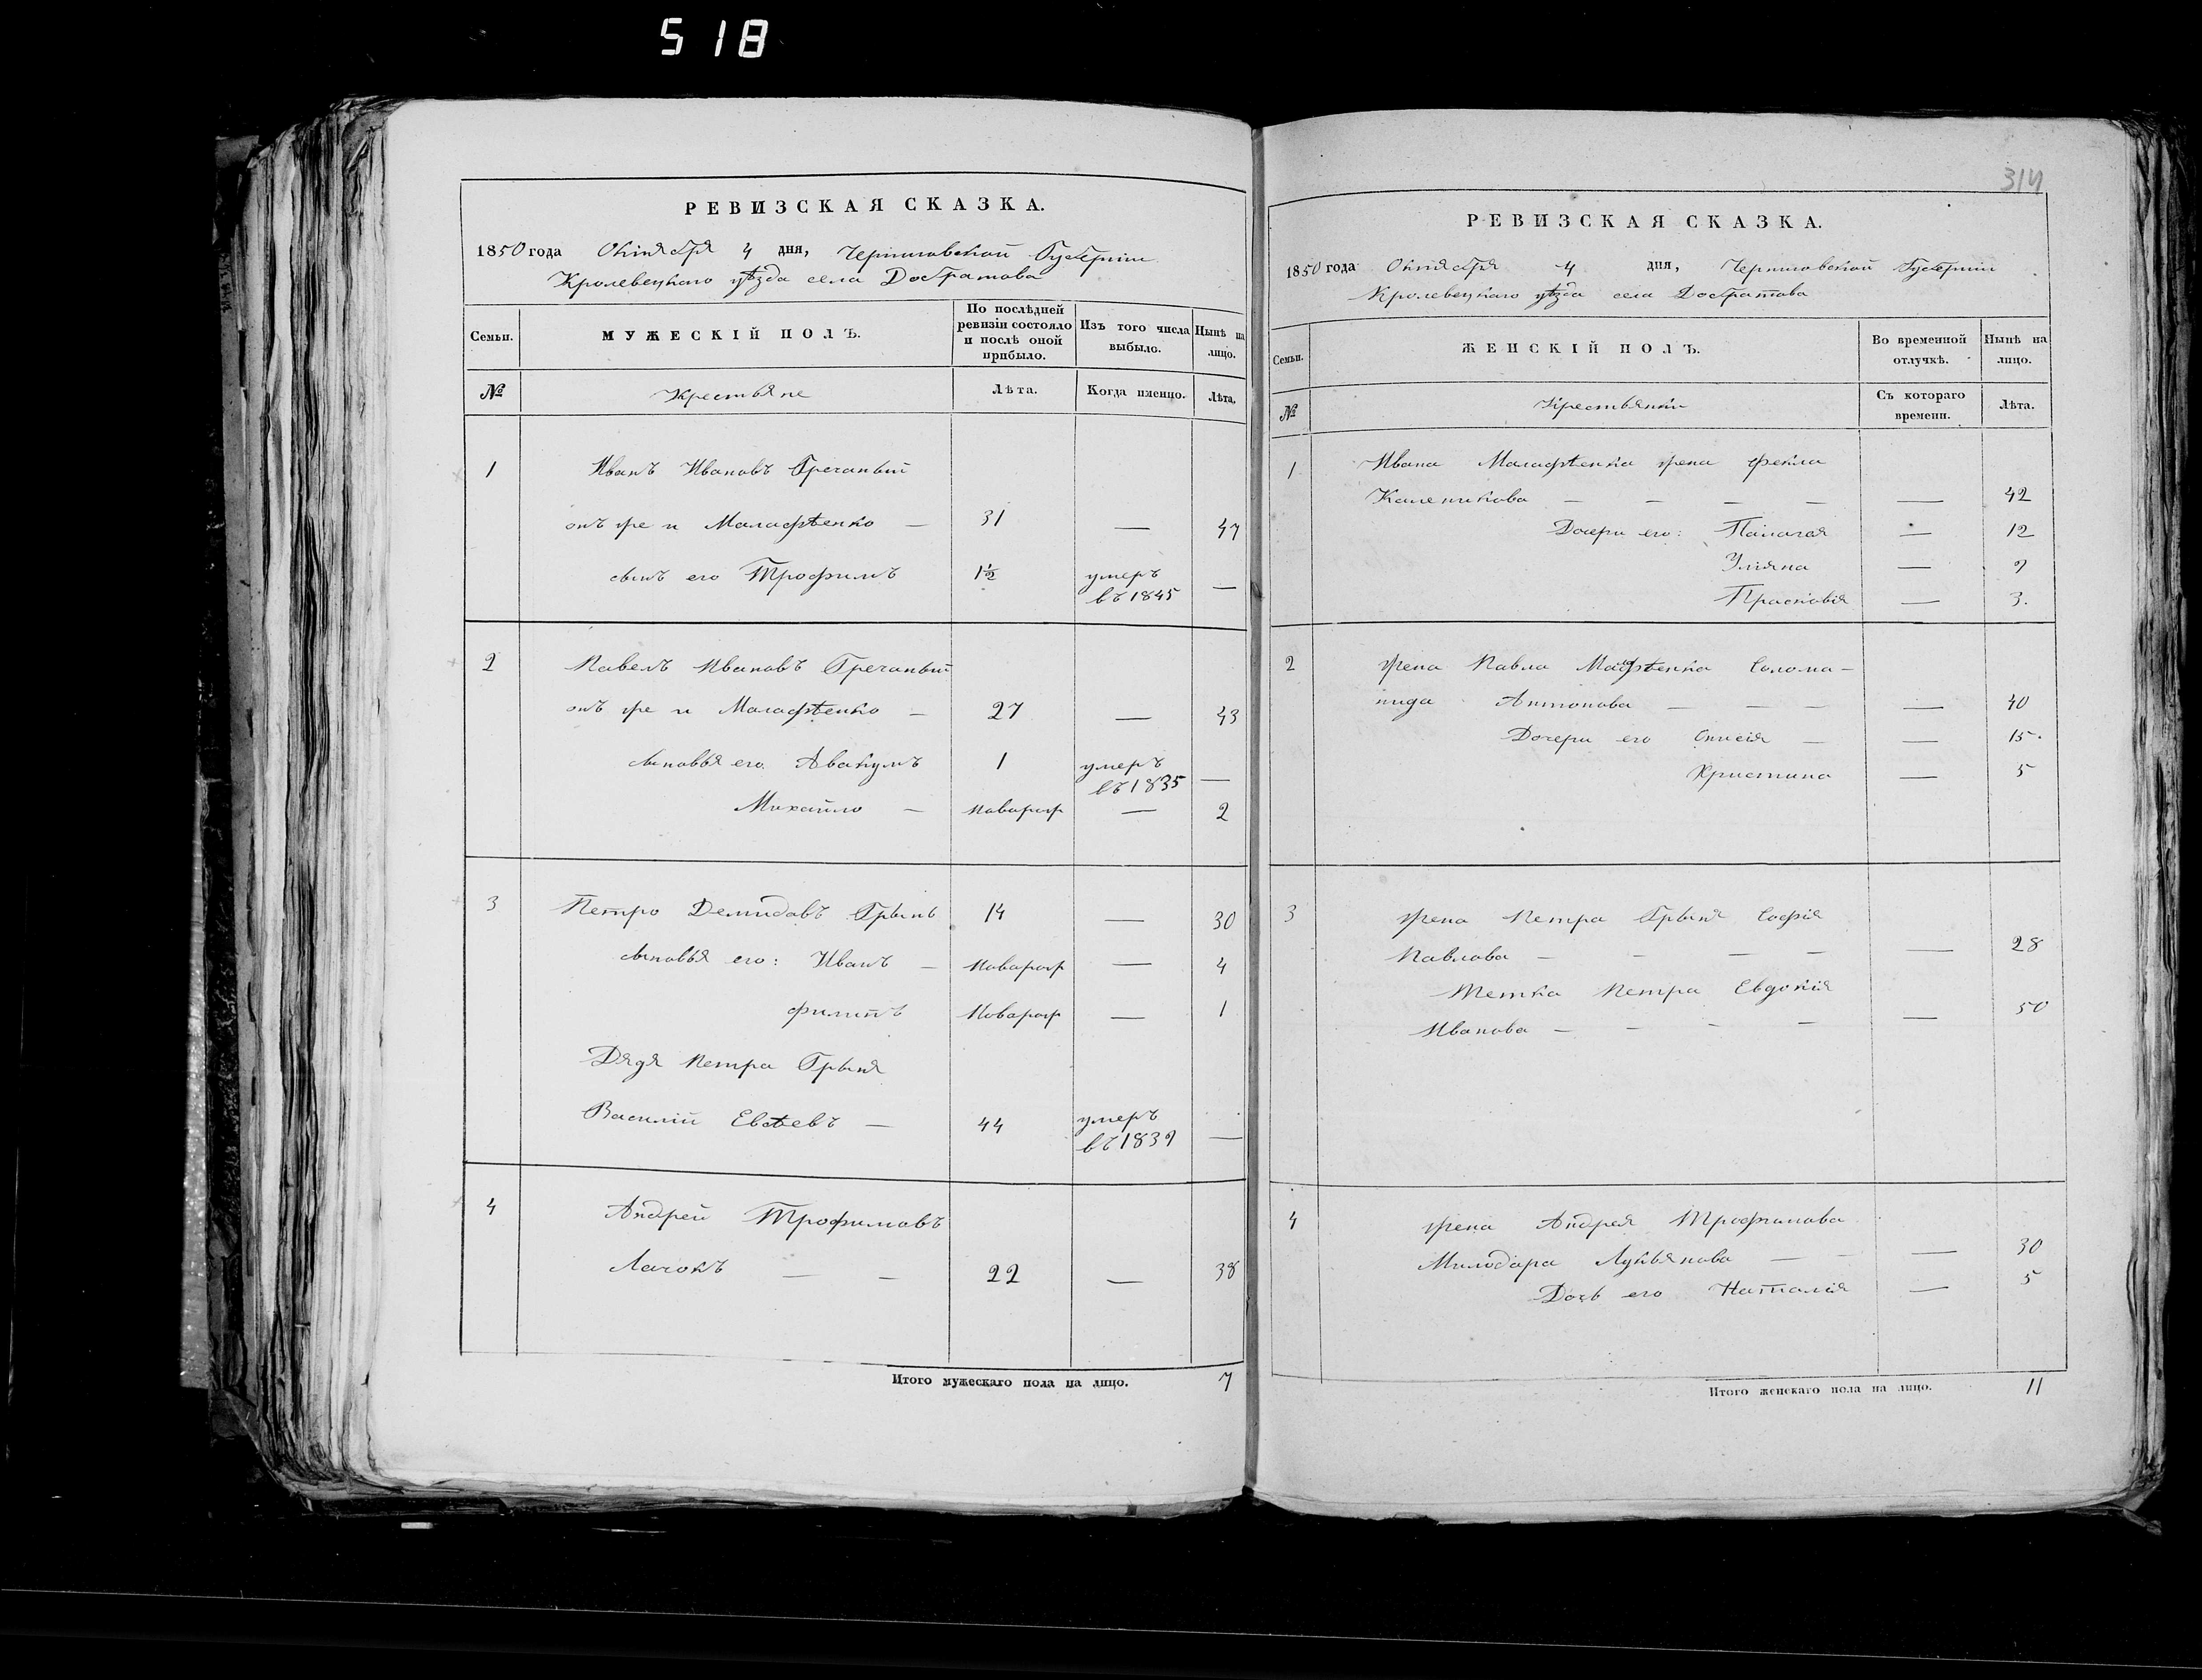 518
РЕВИЗСКАЯ СКАЗКА.
1850 года Октября 4 дня, Черниговской Губернiи
Кролевецкаго уѣзда села Добратова
Семьи.
МУЖЕСКІЙ ПОЛЪ.
По послѣдней ревизіи состояло и послѣ оной прибыло.
Изъ того числа выбыло.
Нынѣ на лицо.
№
Крестьяне
Лѣта.
Когда именно.
Лѣта.
1 Иванъ Ивановъ Гречаный
онъ же и Малафѣенко — 31 — 47
сынъ его Трофимъ 1½ умеръ
въ 1845 —
2 Павелъ Ивановъ Гречаный
онъ же и Малафѣенко — 27 — 43
сыновья его Авакумъ 1 умеръ
въ 1835 —
Михайло — новорож — 2
3 Петро Демидовъ Грынь 14 — 30
сыновья его: Иванъ — новорож — 4
Филипъ новорож — 1
Дядя Петра Грыня
Василій Евсѣевъ — 44 умеръ
въ 1839 —
4 Андрей Трофимовъ
Лачокъ — — 22 — 38
Итого мужескаго пола на лицо. 7
314
РЕВИЗСКАЯ СКАЗКА.
1850 года Октября 4 дня, Черниговской Губернiи
Кролевецкаго уѣзда села Добратова
Семьи.
ЖЕНСКІЙ ПОЛЪ.
Во временной отлучкѣ.
Нынѣ на лицо.
№
Крестьянки
Съ котораго времени.
Лѣта.
1 Ивана Малафѣенка жена Фекла
Каленикова — — — — — 42
Дочери его: Палагея — 12
Уліяна — 9
Прасковія — 3.
2 жена Павла Малафѣенка Солома-
нида Антонова — — — — 40
Дочери его Онисія — — 15.
Христина — 5
3 жена Петра Грыня Софія
Павлова — — — — — 28
Тетка Петра Евдокія
Иванова — — — — — 50
4 жена Андрея Трофимова
Милодара Лукьянова — — — 30
Дочь его Наталія — 5
Итого женскаго пола на лицо. 11